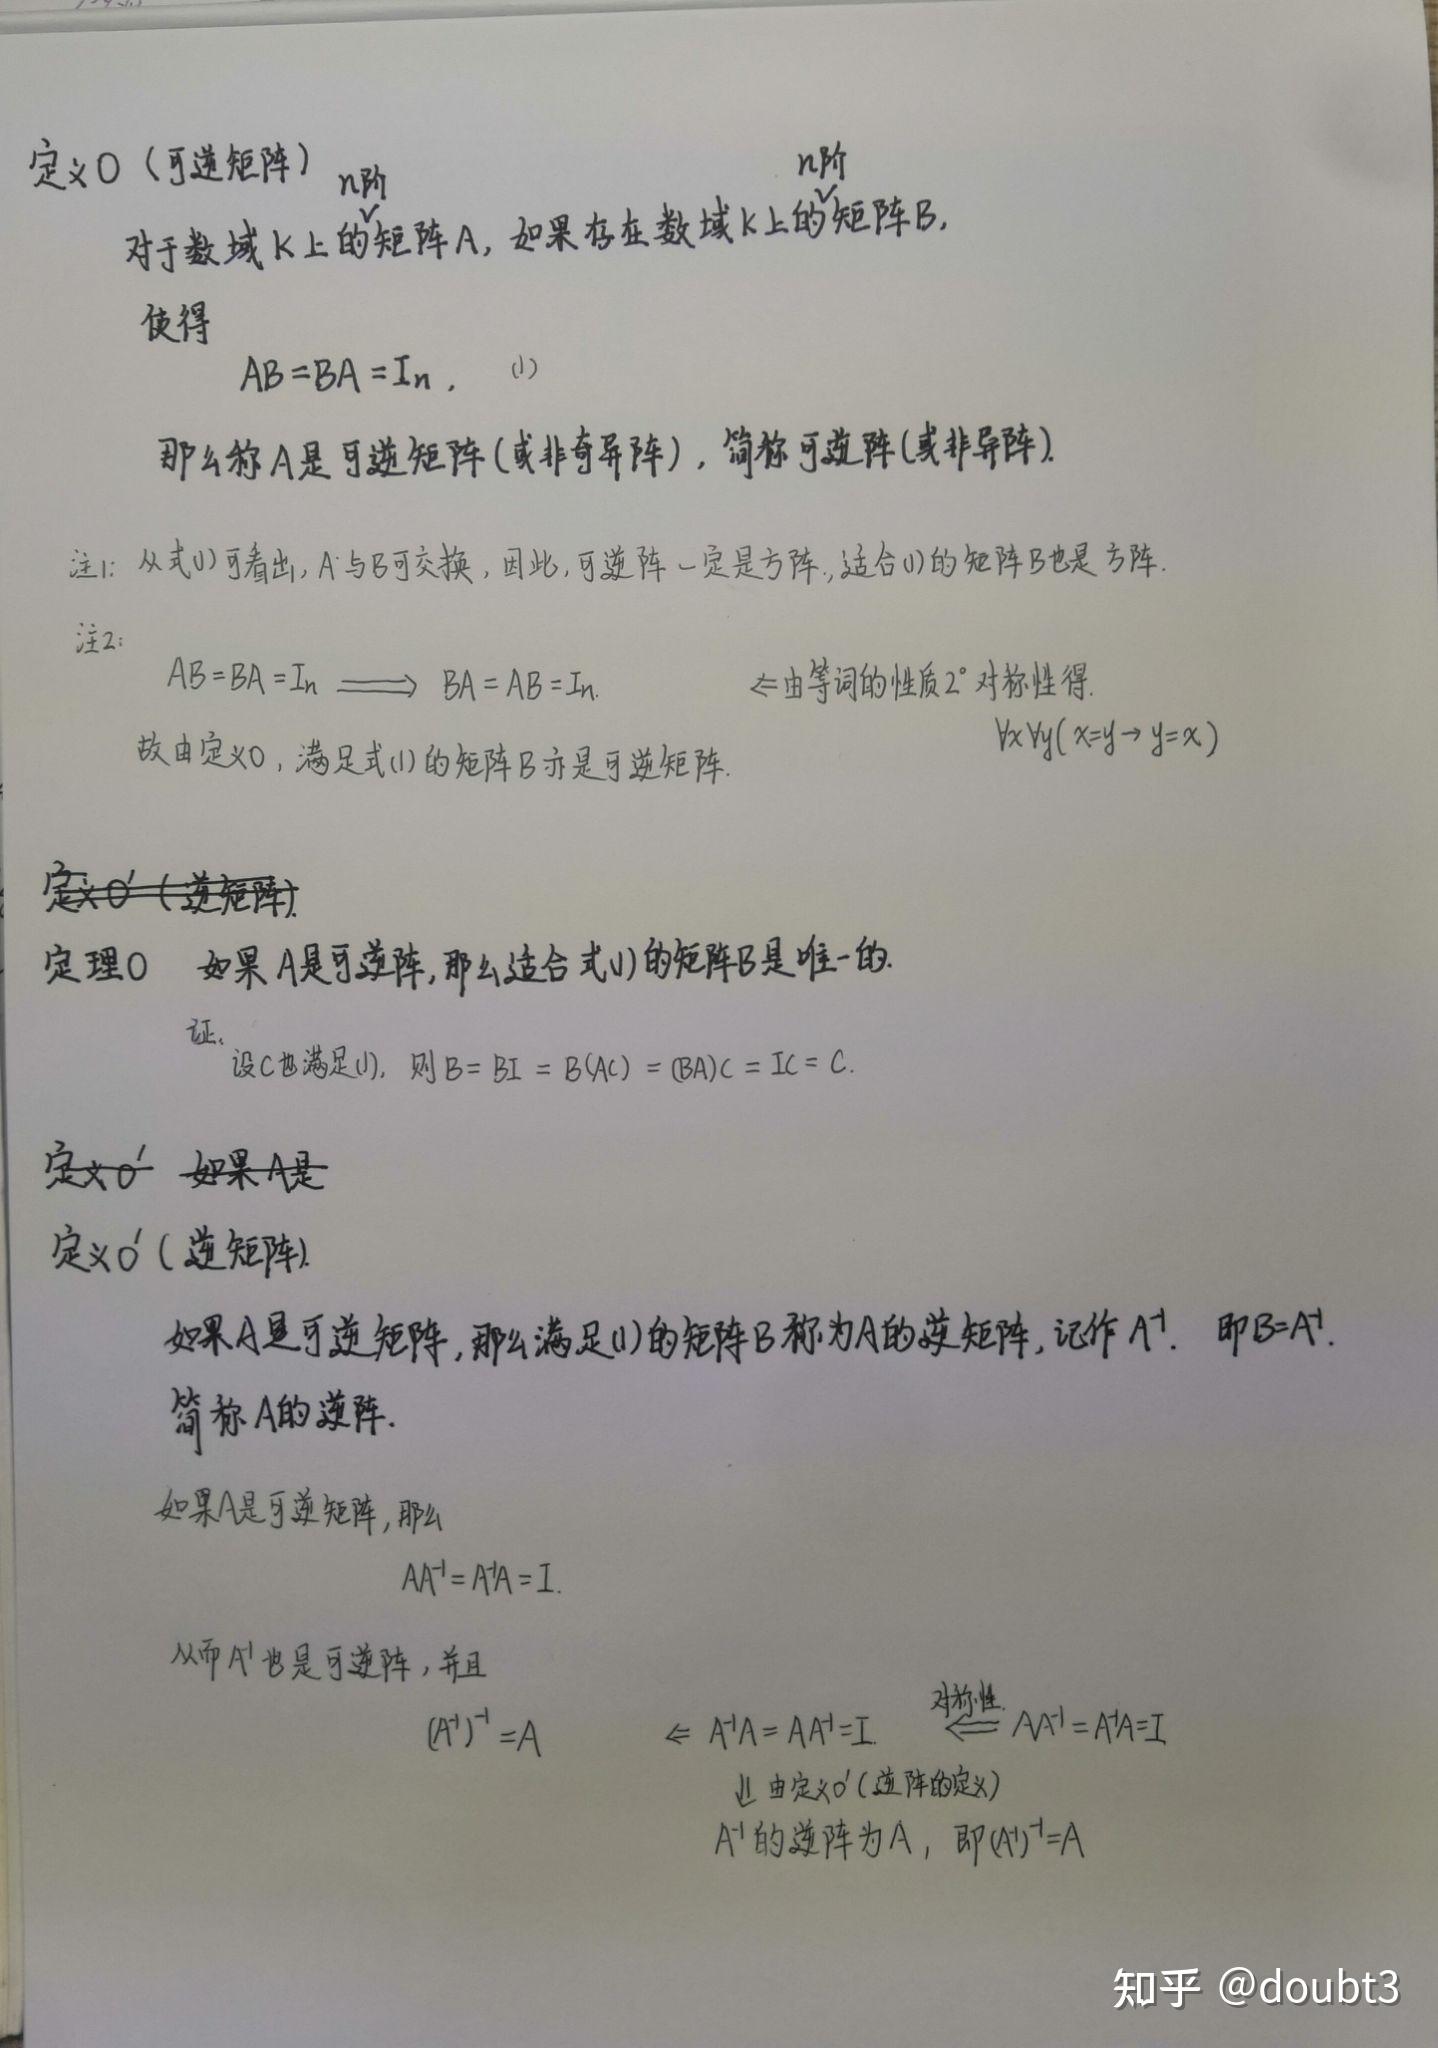 定义0（可逆矩阵）
n阶 n阶
对于数域K上的矩阵A，如果存在数域K上的矩阵B，
使得
AB=BA=Iₙ. (1)
那么称A是可逆矩阵(或非奇异阵)，简称可逆阵(或非异阵).
注1: 从式(1)可看出，A与B可交换，因此，可逆阵一定是方阵，适合(1)的矩阵B也是方阵.
注2:
AB=BA=Iₙ ⟹ BA=AB=Iₙ. ⇐由等词的性质2°对称性得.
∀x∀y(x=y→y=x)
故由定义0，满足式(1)的矩阵B亦是可逆矩阵.
定义0′（逆矩阵).
定理0 如果A是可逆阵，那么适合式(1)的矩阵B是唯一的.
证.
设C也满足(1)，则B=BI=B(AC)=(BA)C=IC=C.
定义0′ 如果A是
定义0′（逆矩阵).
如果A是可逆矩阵，那么满足(1)的矩阵B称为A的逆矩阵，记作A⁻¹. 即B=A⁻¹.
简称A的逆阵.
如果A是可逆矩阵，那么
AA⁻¹=A⁻¹A=I.
从而A⁻¹也是可逆阵，并且
对称性.
(A⁻¹)⁻¹=A ⇐ A⁻¹A=AA⁻¹=I. ⟸ AA⁻¹=A⁻¹A=I
⇓ 由定义0′(逆阵的定义)
A⁻¹的逆阵为A，即(A⁻¹)⁻¹=A
知乎 @doubt3